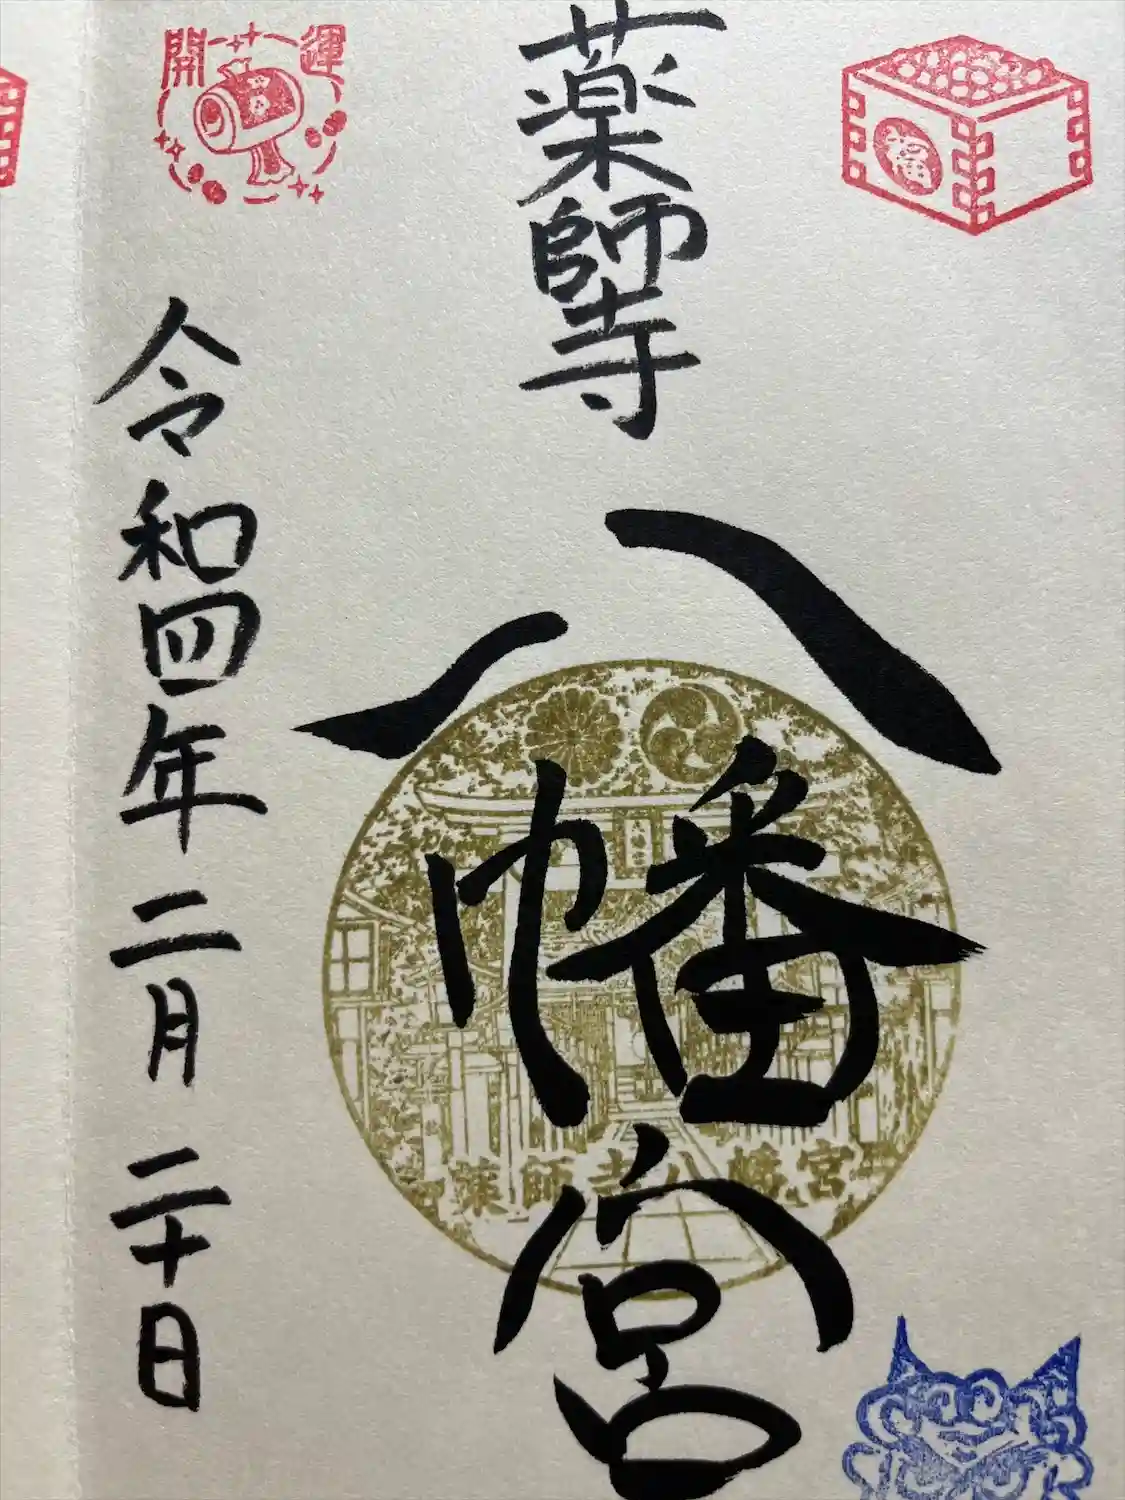 福
薬師寺
八幡宮
薬師寺八幡宮
開運
令和四年二月二十日